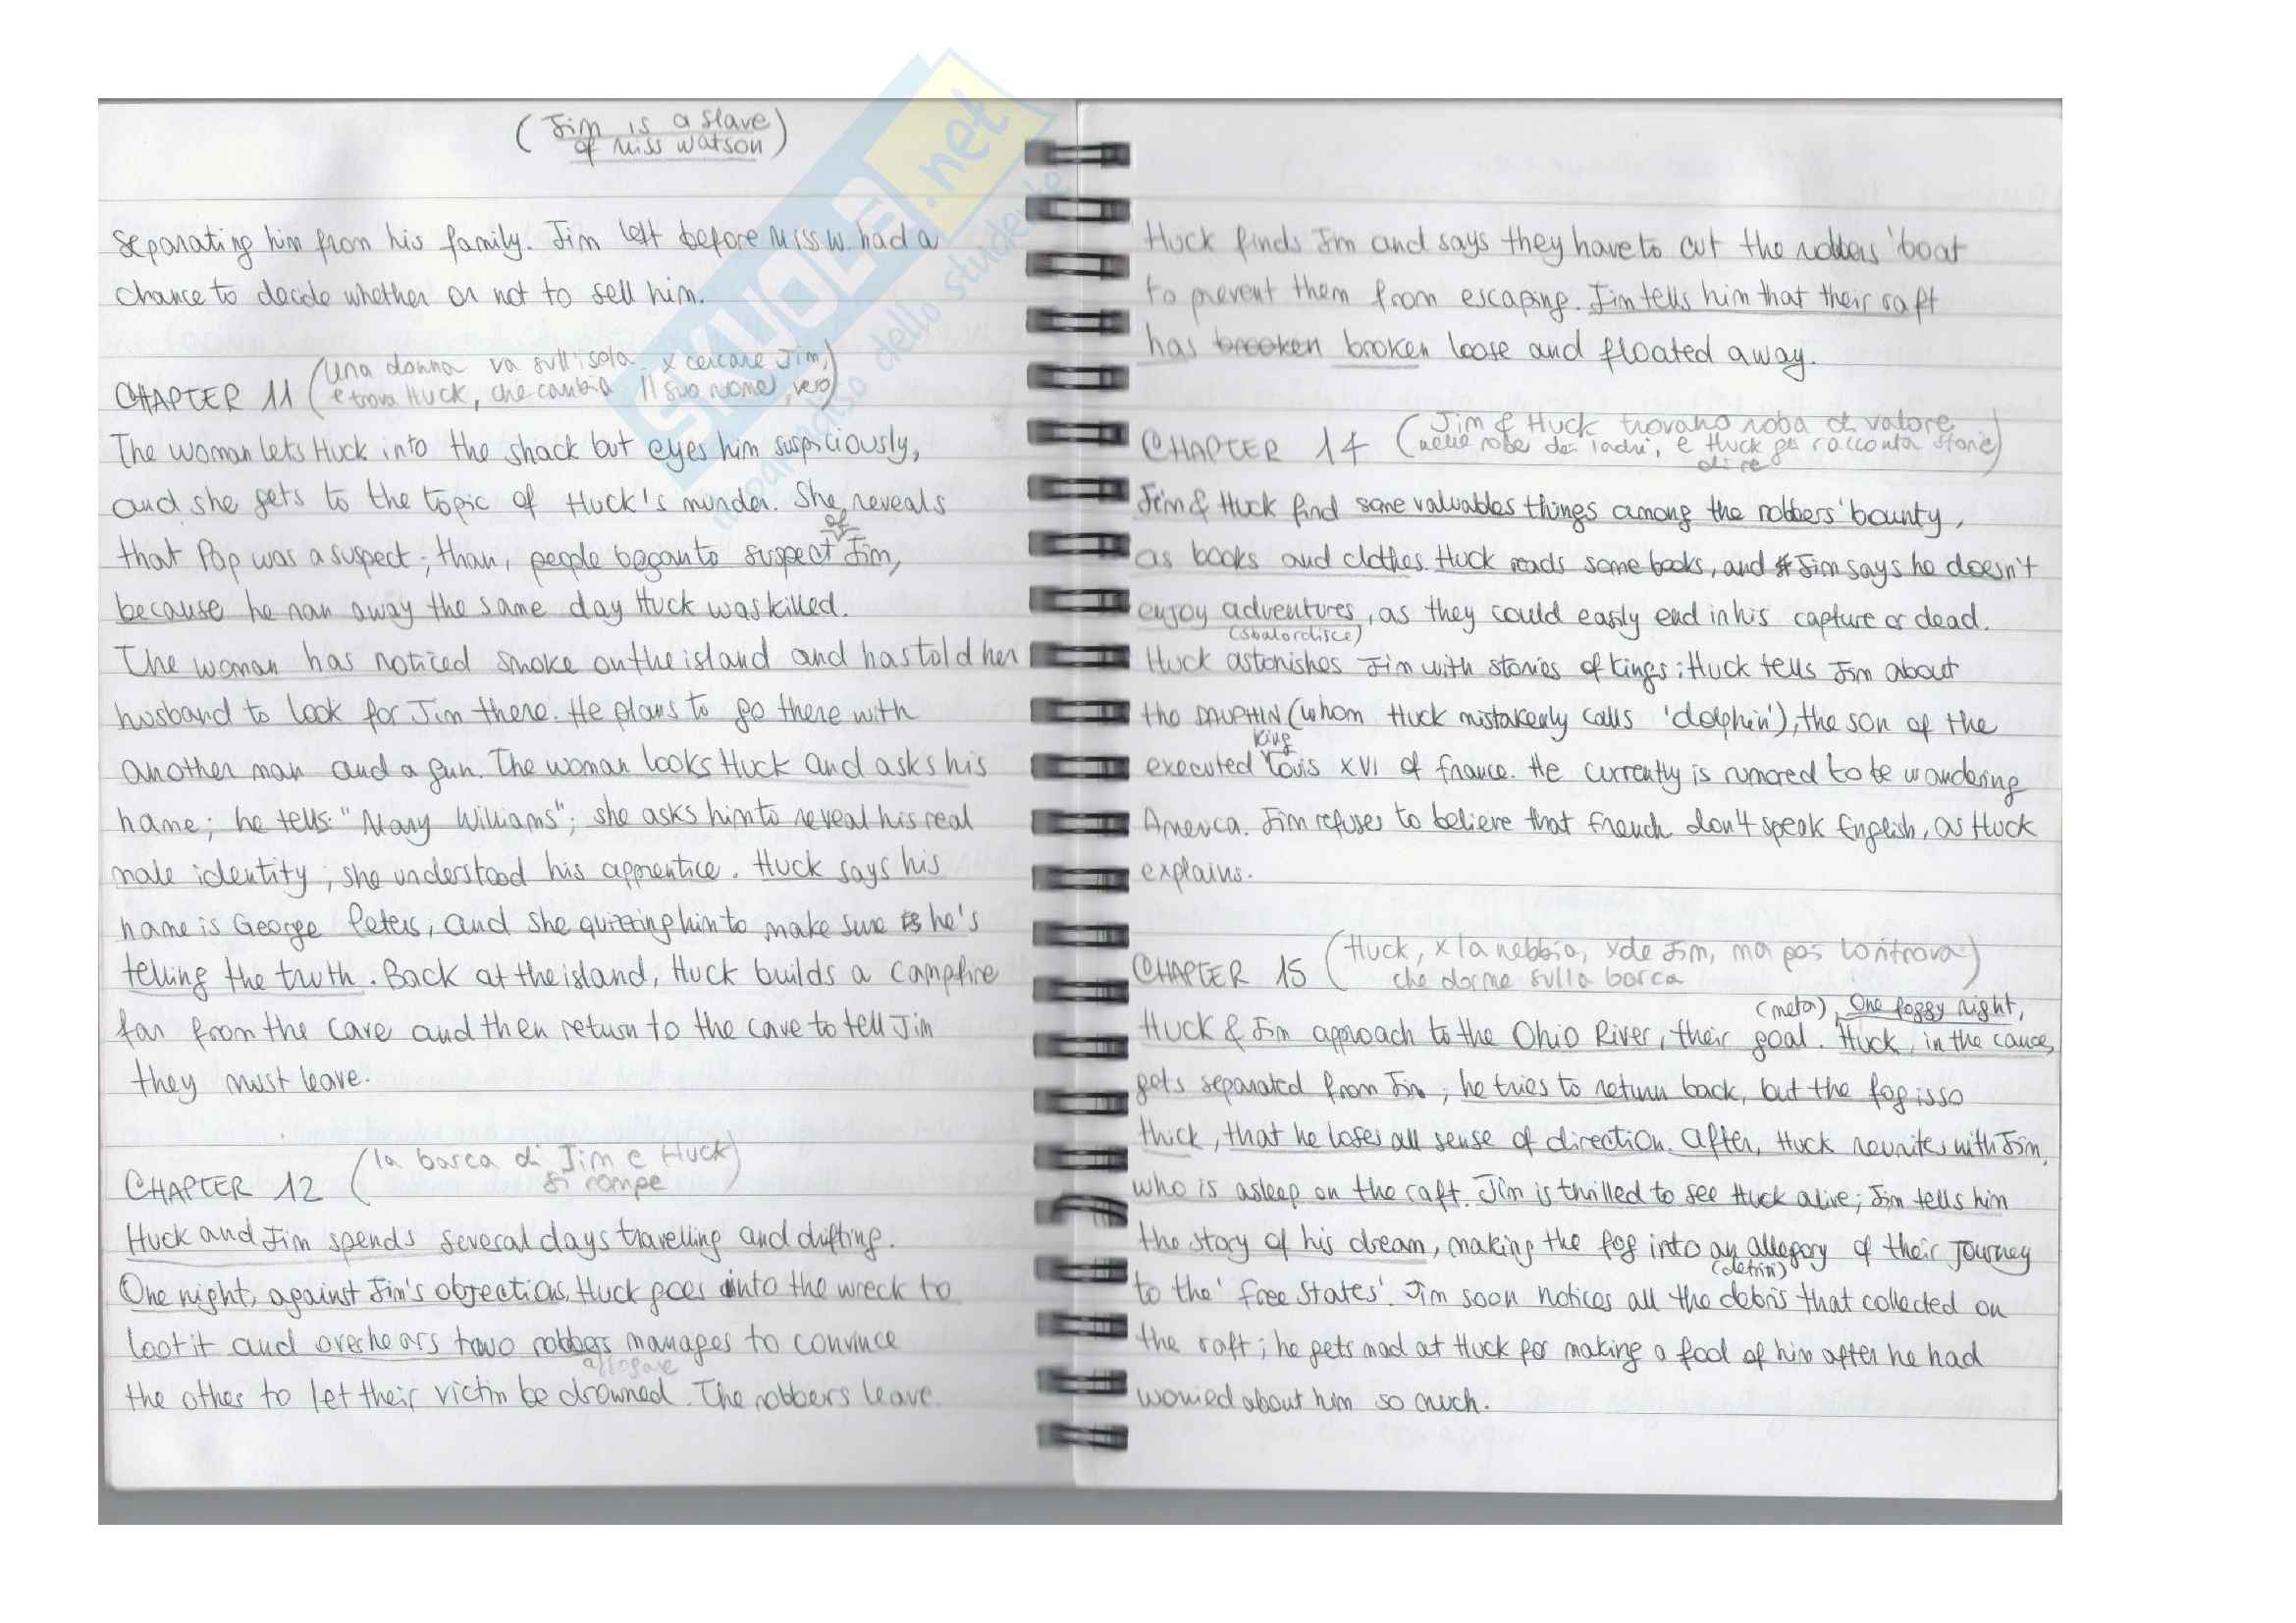 (Jim is a slave
of Miss Watson)
separating him from his family. Jim left before Miss W. had a
chance to decide whether or not to sell him.
(una donna va sull'isola x cercare Jim,
CHAPTER 11 e trova Huck, che cambia il suo nome, vero)
The woman lets Huck into the shack but eyes him suspiciously,
and she gets to the topic of Huck's murder. She reveals
that Pap was a suspect; than, people began to suspect of Jim,
because he ran away the same day Huck was killed.
The woman has noticed smoke on the island and has told her
husband to look for Jim there. He plans to go there with
another man and a gun. The woman looks Huck and asks his
name; he tells: "Mary Williams"; she asks him to reveal his real
male identity; she understood his apprentice. Huck says his
name is George Peters, and she quizzing him to make sure is he's
telling the truth. Back at the island, Huck builds a campfire
far from the cave and then return to the cave to tell Jim
they must leave.
(la barca di Jim e Huck
CHAPTER 12 si rompe)
Huck and Jim spends several days travelling and drifting.
One night, against Jim's objections, Huck goes into the wreck to
loot it and overhears two robbers manages to convince
affogare
the other to let their victim be drowned. The robbers leave.
Huck finds Jim and says they have to cut the robbers' boat
to prevent them from escaping. Jim tells him that their raft
has brooken broken loose and floated away.
(Jim & Huck trovano roba di valore
CHAPTER 14 nelle robe dei ladri, e Huck gli racconta storie)
di re
Jim & Huck find some valuables things among the robbers' bounty,
as books and clothes. Huck reads some books, and Jim says he doesn't
enjoy adventures, as they could easily end in his capture or dead.
(sbalordisce)
Huck astonishes Jim with stories of kings: Huck tells Jim about
the DAUPHIN (whom Huck mistakenly calls 'dolphin'), the son of the
executed king Louis XVI of france. He currently is rumored to be wandering
America. Jim refuses to believe that french don't speak English, as Huck
explains.
(Huck, x la nebbia, xde Jim, ma poi lo ritrova)
CHAPTER 15 che dorme sulla barca
(meta) One foggy night,
Huck & Jim approach to the Ohio River, their goal. Huck, in the canoe,
gets separated from Jim; he tries to return back, but the fog is so
thick, that he loses all sense of direction. After, Huck reunites with Jim,
who is asleep on the raft. Jim is thrilled to see Huck alive; Jim tells him
the story of his dream, making the fog into an allegory of their journey
(detriti)
to the 'free States'. Jim soon notices all the debris that collected on
the raft; he gets mad at Huck for making a fool of him after he had
worried about him so much.
SKUOLA.net
il paradiso dello studente